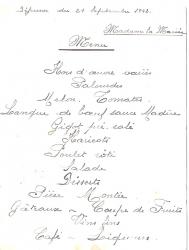 Déjeuner du 21 Septembre 1942.
Madame la Mariée
Menu
Hors d'œuvre variés
Palourdes
Melon. Tomates
Langue de bœuf sauce Madère
Gigot pré-salé
Haricots
Poulet rôti
Salade
Desserts
Pièce Montée
Gâteaux Coupe de Fruits
Vins fins
Café Liqueurs